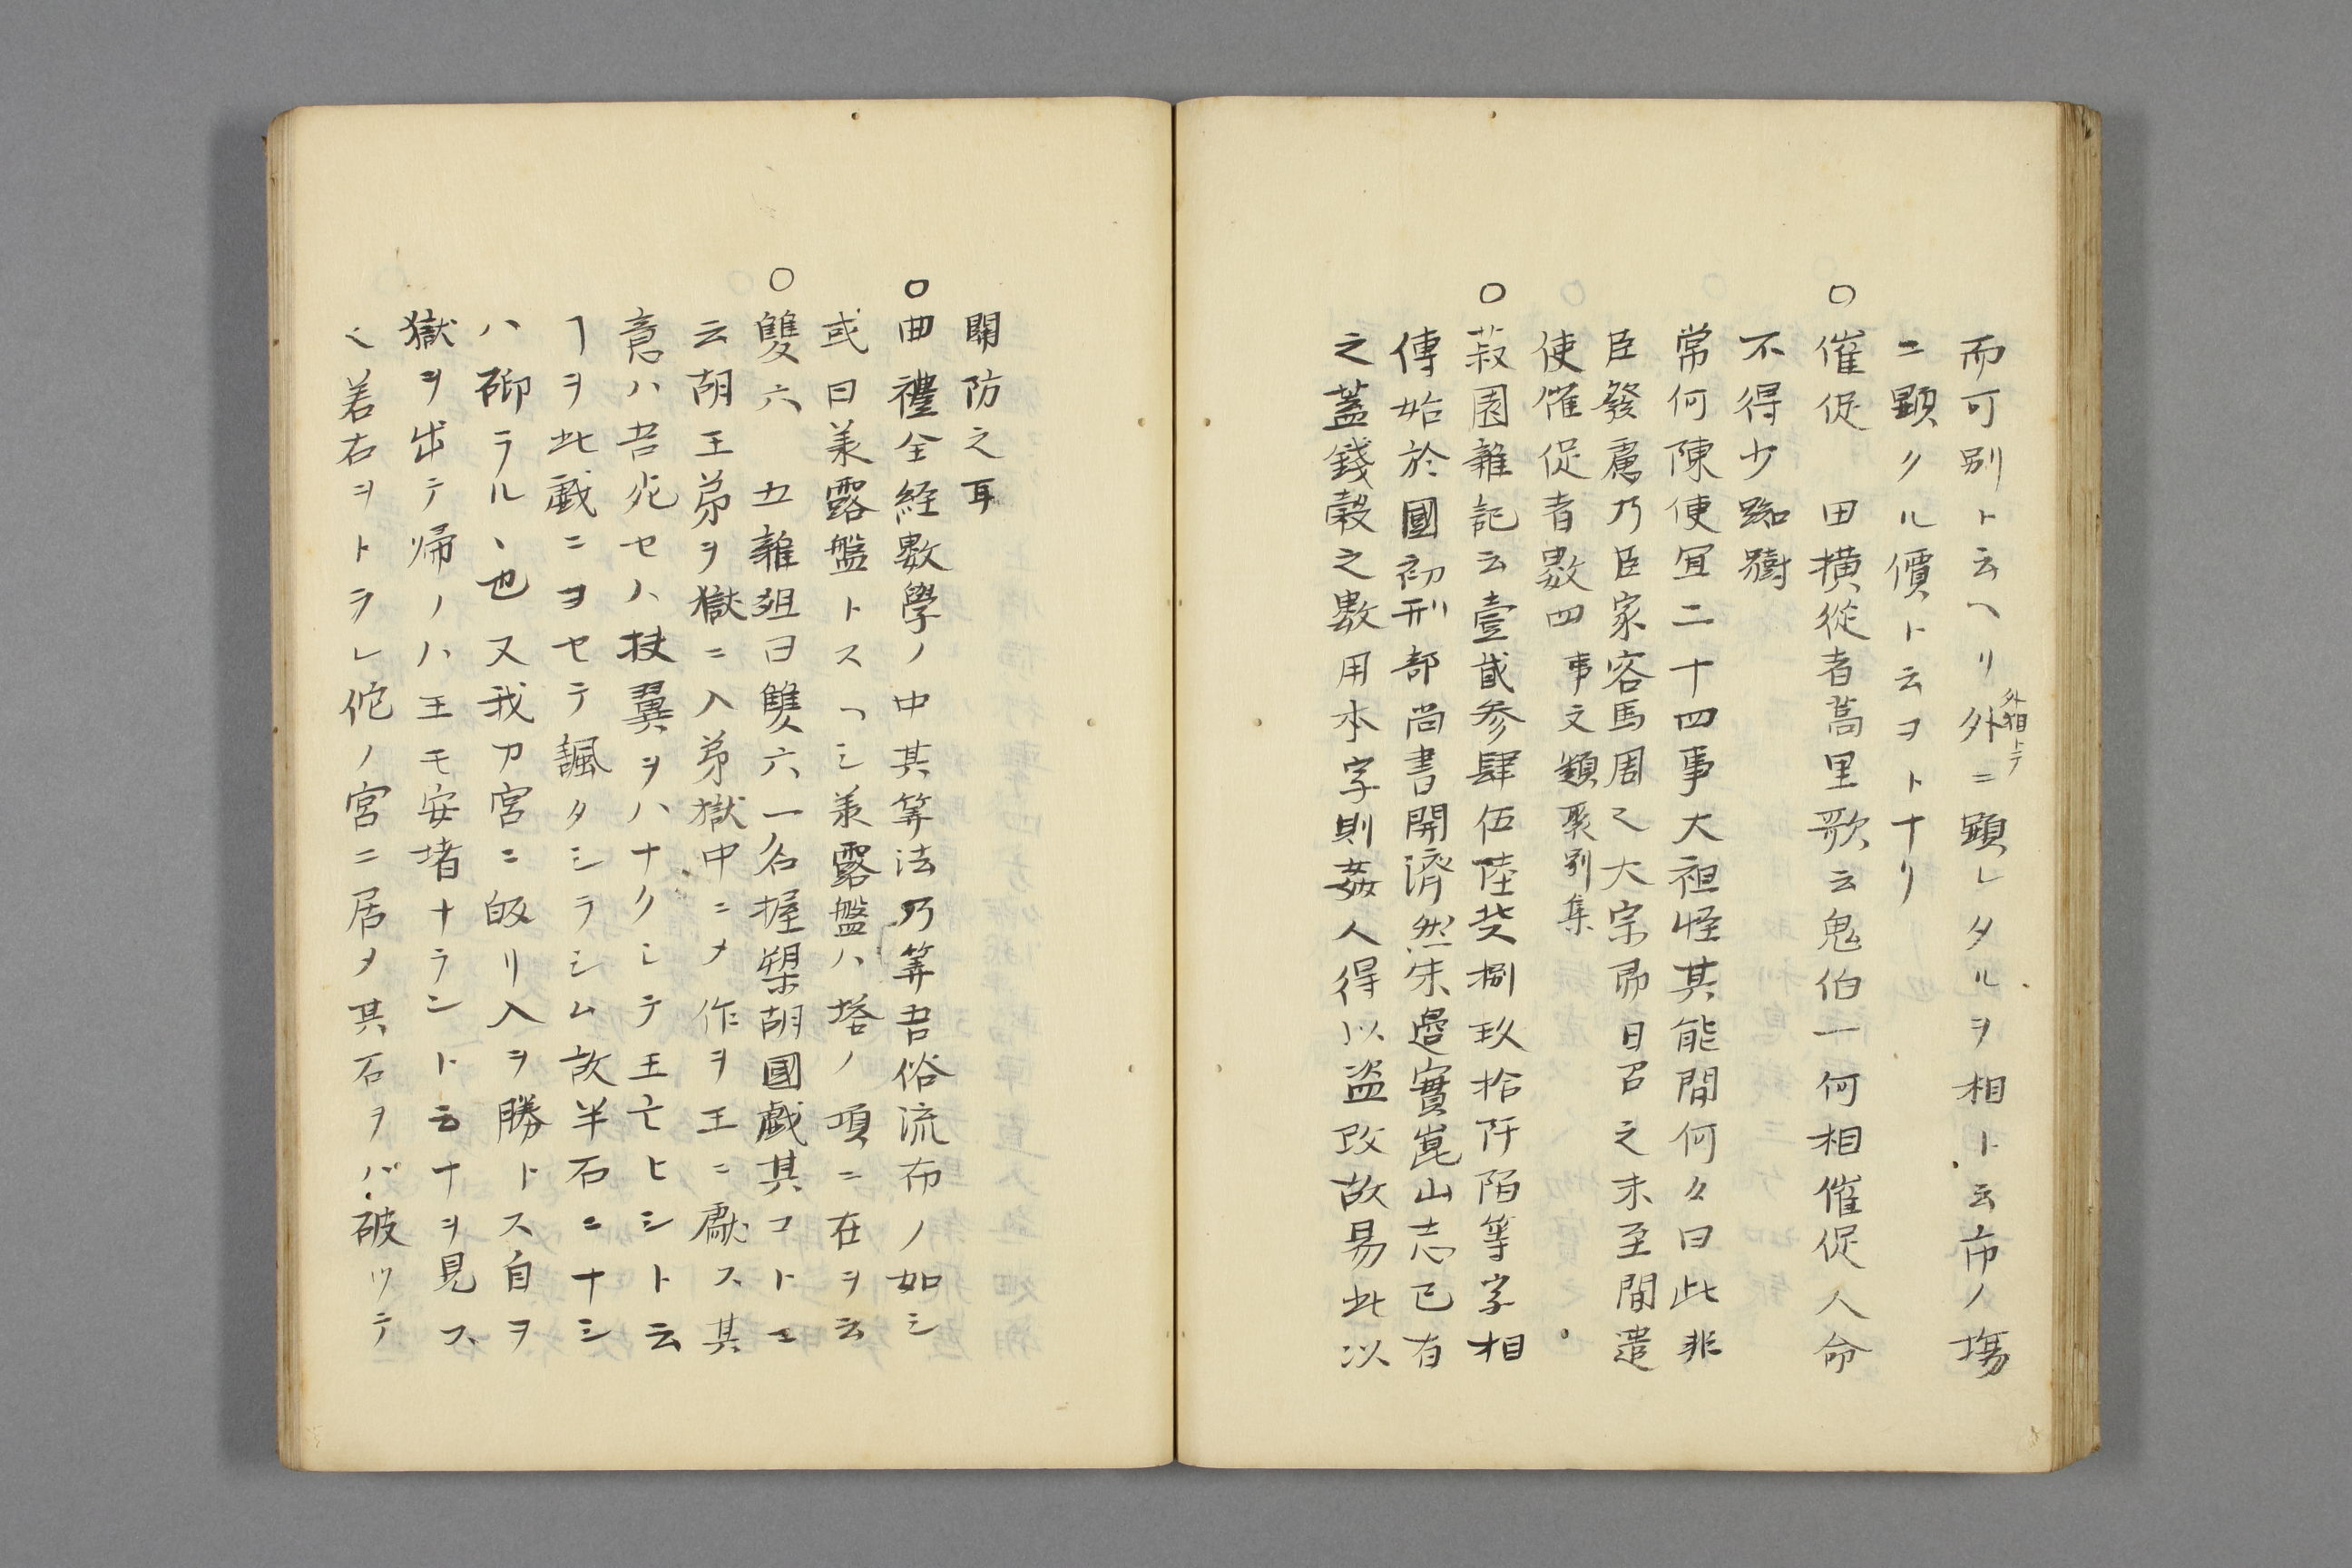 而可別ト云ヘリ外ニ顕レタルヲ相ト云市ノ塲
外相トテ
ニ顕クル價ト云ヲトナリ
○催促　田横從者蒿里歌云鬼伯一何相催促人命
不得少踟躕
常何陳便冝二十四事大祖怪其能間何々曰此非
臣發慮乃臣家客馬周々大宗即日召之未至間遣
使催促者數四　事文類聚別集
○菽園雜記云壹貳参肆伍陸柒捌玖拾阡陌等字相
傳始於國初刑部尚書開濟然宋邊實崑山志已有
之蓋錢穀之數用本字則姦人得以盗改故易此以
關防之耳
○曲禮全経數學ノ中其筭法乃筭吾俗流布ノ如シ
或曰羕露盤トスヿシ羕露盤ハ塔ノ項ニ在ヲ云
○雙六　五雜俎曰雙六一名握槊胡國戯其コトニ
云胡王弟ヲ獄ニ入弟獄中ニメ作ヲ王ニ献ス其
意ハ吾死セハ扶翼ヲハナクシテ王亡ヒシト云
ヿヲ此戯ニヨセテ諷タシラシム故半石ニナシ
ハ礀ラル丶也又我カ宮ニ皈リ入ヲ勝トス自ヲ
獄ヲ出テ帰ノハ王モ安堵ナラントスナヲ見ス
〻若右ヲトラレ佗ノ宮ニ居メ其石ヲバ破ツテ